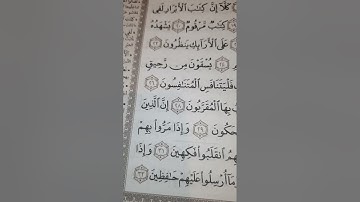 كَلَّآ إِنَّ كِتَٰبَ ٱلْأَبْرَارِ لَفِى
كِتَٰبٌ مَّرْقُومٌ ٢٠ يَشْهَدُهُ
عَلَى ٱلْأَرَآئِكِ يَنظُرُونَ ٢٣
٢٤ يُسْقَوْنَ مِن رَّحِيقٍ
فَلْيَتَنَافَسِ ٱلْمُتَنَٰفِسُونَ ٢٦
بِهَا ٱلْمُقَرَّبُونَ ٢٨ إِنَّ ٱلَّذِينَ
حَكُونَ ٢٩ وَإِذَا مَرُّوا۟ بِهِمْ
هِمُ ٱنقَلَبُوا۟ فَكِهِينَ ٣١ وَإِذَا
مَآ أُرْسِلُوا۟ عَلَيْهِمْ حَٰفِظِينَ ٣٣